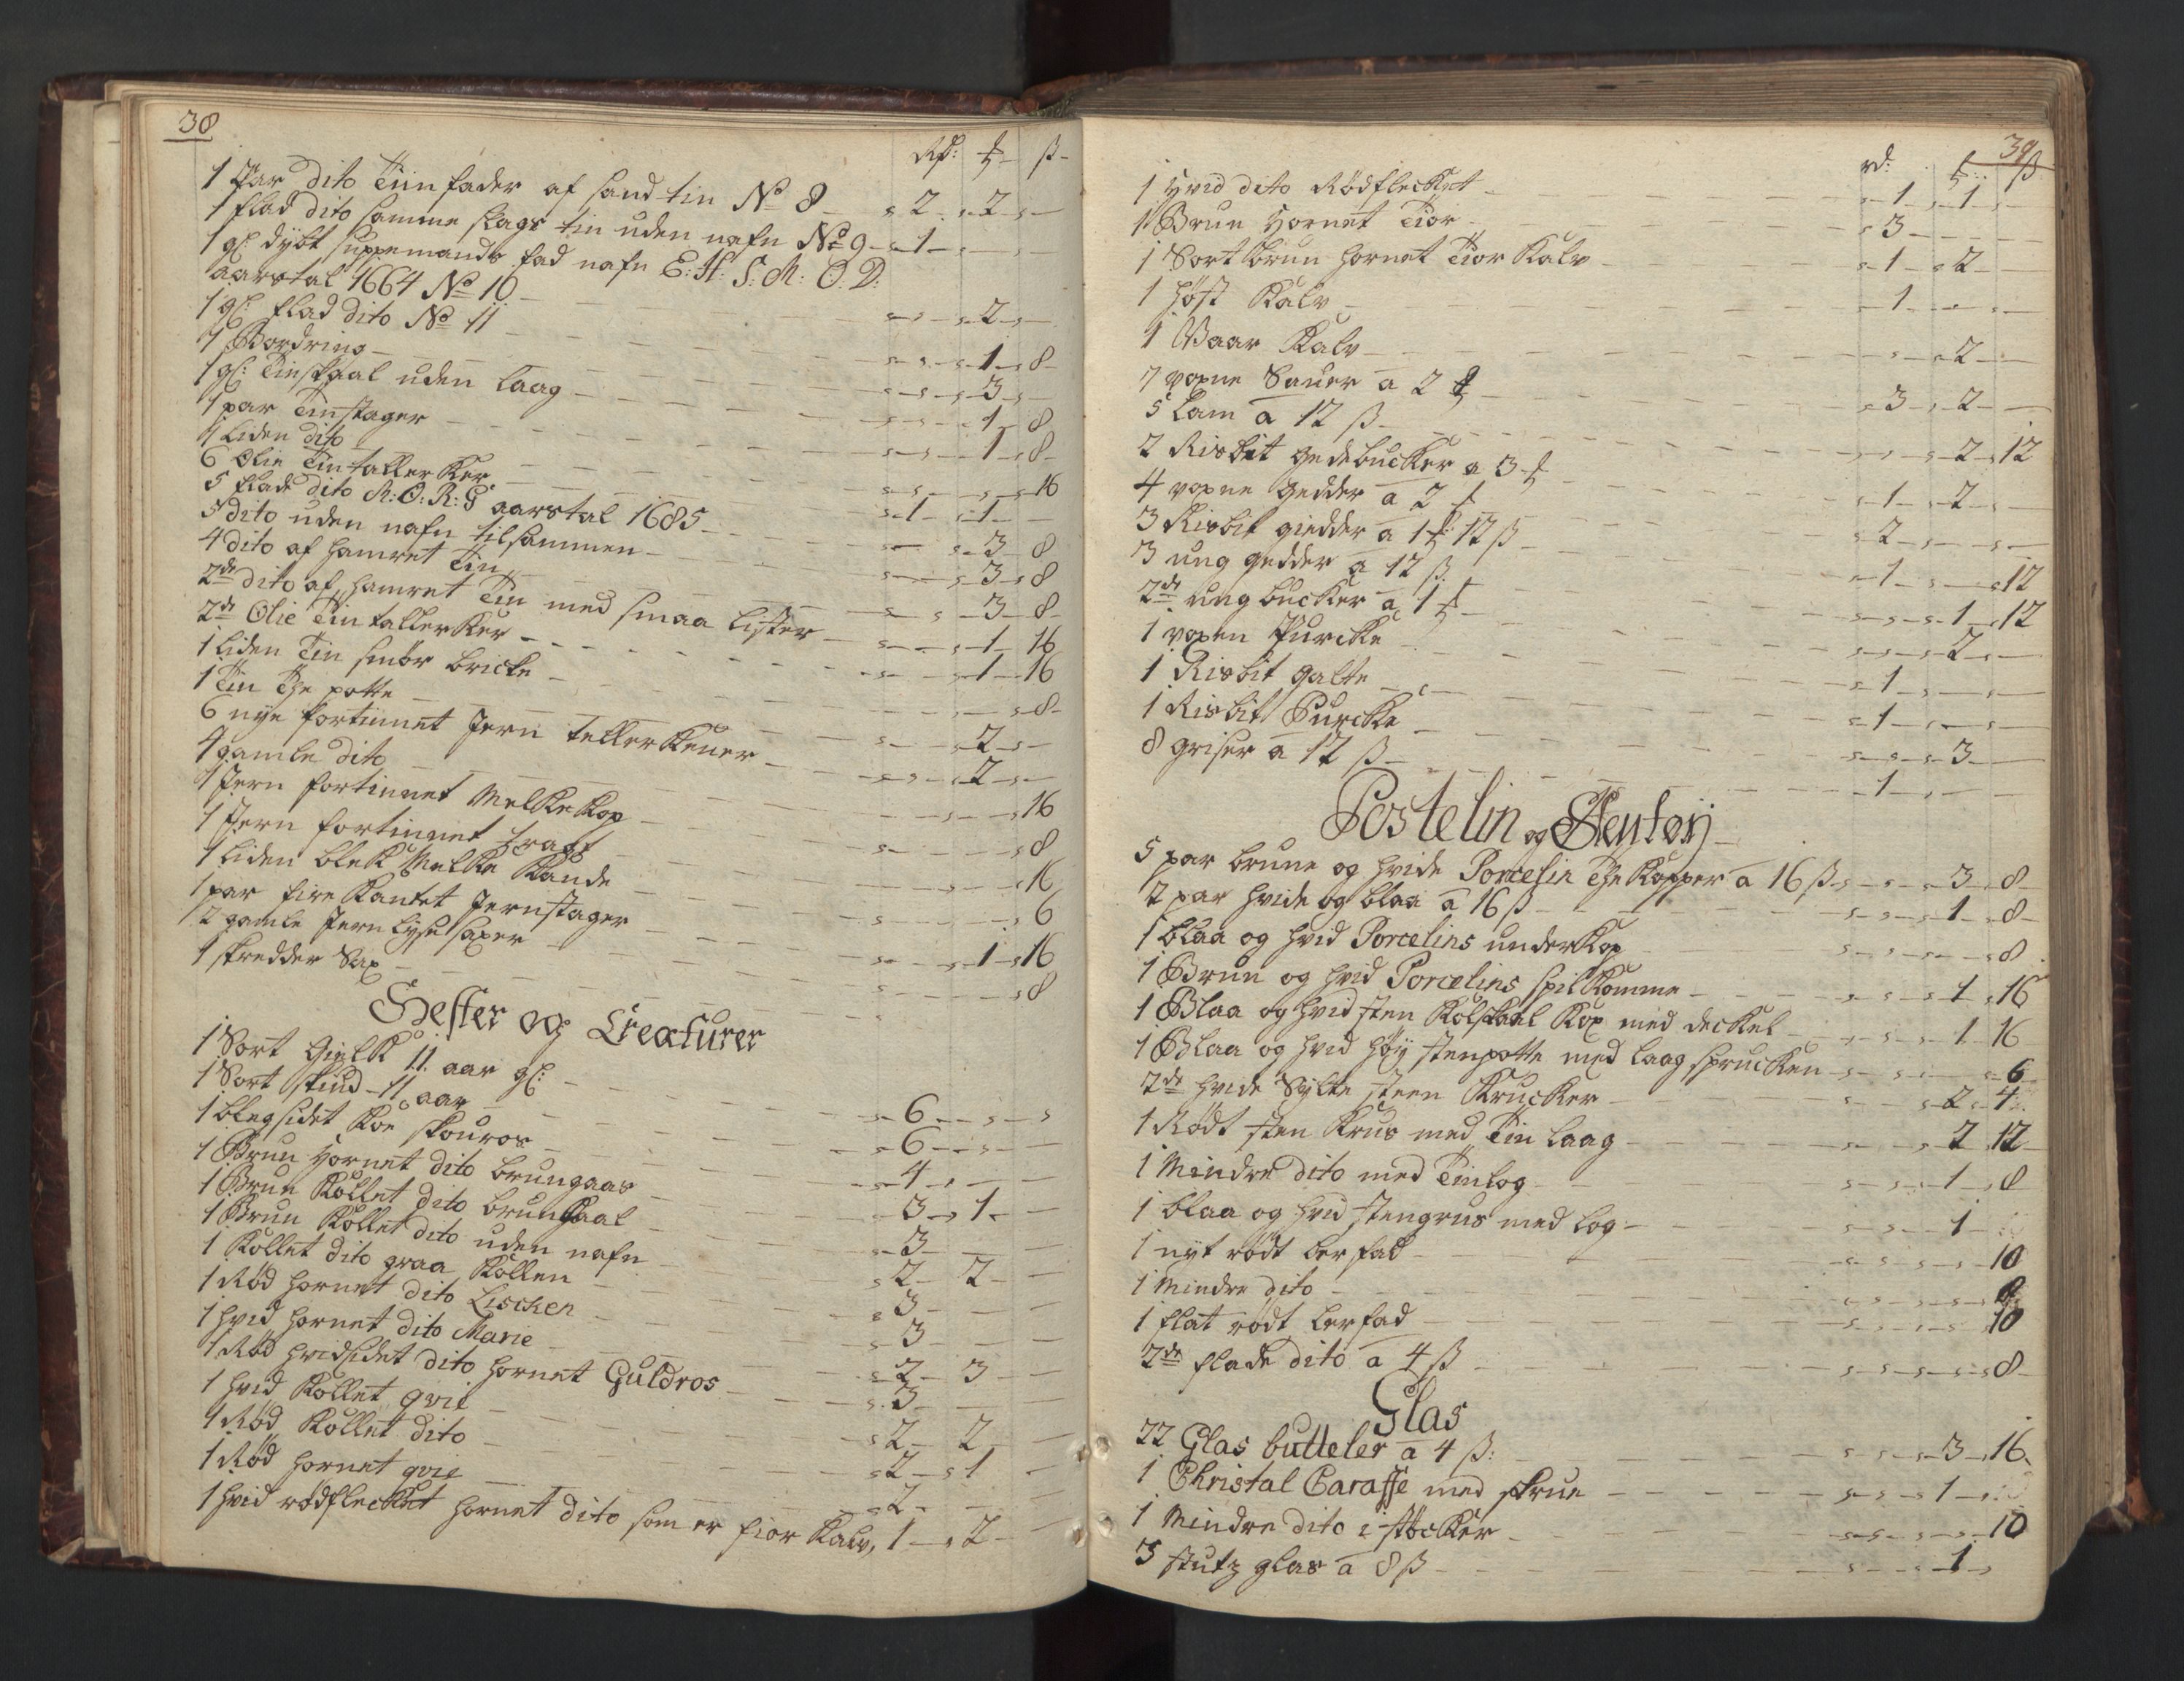 38
Rd: ʒ ß
1 Par dito Tiin fader af sand tin No 8 2 2
1 flad dito samme slags tin uden nafn No 9 1
1 gl: dybt suppemands fad nafn E: H: S: M: O. D:
aarstal 1664 No 10 2
1 gl: flad dito No 11 1 8
1 Bordring 3
1 gl: Tinskaal uden laag 1 8
1 par Tinstager 1 8
1 Liden dito 16
6 Olie Tintallerker 1 1
5 flade dito A: O: R: G aarstal 1685 3 8
5 dito uden nafn tilsammen 3 8
4 dito af hamret Tin 3 8
2de dito af hamret Tin med smaa Lister 1 16
2de Olie Tin tallerker 1 16
1 Liden Tin smör bricke 8
1 Tin The potte 2
6 nye fortinnet Jern tellerkener 2
4 gamle dito 16
1 Jern fortinnet Melkekop 8
1 Jern fortinnet 16
1 Liden blek Melke Kande 6
1 par fire Kantet Jernstager 1 16
2 gamle Jern Lyse saxer 8
1 skredder Sax
Hester og Creaturer
1 Sort Gielk 11 aar gl: 6
1 Sort skiud 11 aar 6
1 blegsidet Koe skouros 4
1 Brun Hornet dito brungaas 3 1
1 Brun Kollet dito brunkaal 3
1 Brun Kollet dito uden nafn 2 2
1 Kollet dito graa Kollen 3
1 Rød hornet dito Lischen 3
1 hvid hornet dito Marie 2 3
1 Rød hvidsidet dito hornet Guldros 3
1 hvid Kollet qvie 2 2
1 Rød Kollet dito 2 1
1 Rød hornet qvie 2
1 hvid rødflecket hornet dito som er fior Kalv, 1 2
39
rd: ʒ ß
1 Hvid dito Rødflecket 1 1
1 Brun Hornet Tior 3
1 Sort brun hornet Tior Kalv 1 2
1 høst Kalv 1
1 Vaar Kalv 2
7 voxne Sauer a 2 ʒ 3 2
5 Lam a 12 ß 2 12
2 Risbit gedebucker a 3 ʒ 1 2
4 voxne gedder a 2 ʒ 2
3 Risbit giedder a 1 ʒ 12 ß 1 12
3 ung gedder a 12 ß 1 12
2de ung bucker a 1 ʒ 2
1 voxen Purcke 1
1 Risbit galte 1
1 Risbit Purcke 3
8 griser a 12 ß 1
Postelin og Stentøy
5 par brune og hvide Porcelin The Kopper a 16 ß 3 8
2 par hvide og blaa a 16 ß 1 8
1 blaa og hvid Porcelins underkop 8
1 Brun og hvid Porcelins spilkomme 1 16
1 Blaa og hvid sten Kolskaal Kop med deckel 1 16
1 Blaa og hvid høy stenpotte med laag sprucken 6
2de hvide Sylte steen Krucker 2 4
1 Rødt sten Krus med Tin laag 2 12
1 Mindre dito med Tinlog 1 8
1 blaa og hvid stengrus med log 1
1 nyt rødt lerfad 10
1 Mindre dito 8
1 flat rødt Lerfad 10
2de flade dito a 4 ß 8
Glas
22 Glas butteler a 4 ß: 3 16
1 Christal Caraffe med skrue 1
1 Mindre dito i støcker 10
3 stutz glas a 8 ß 1